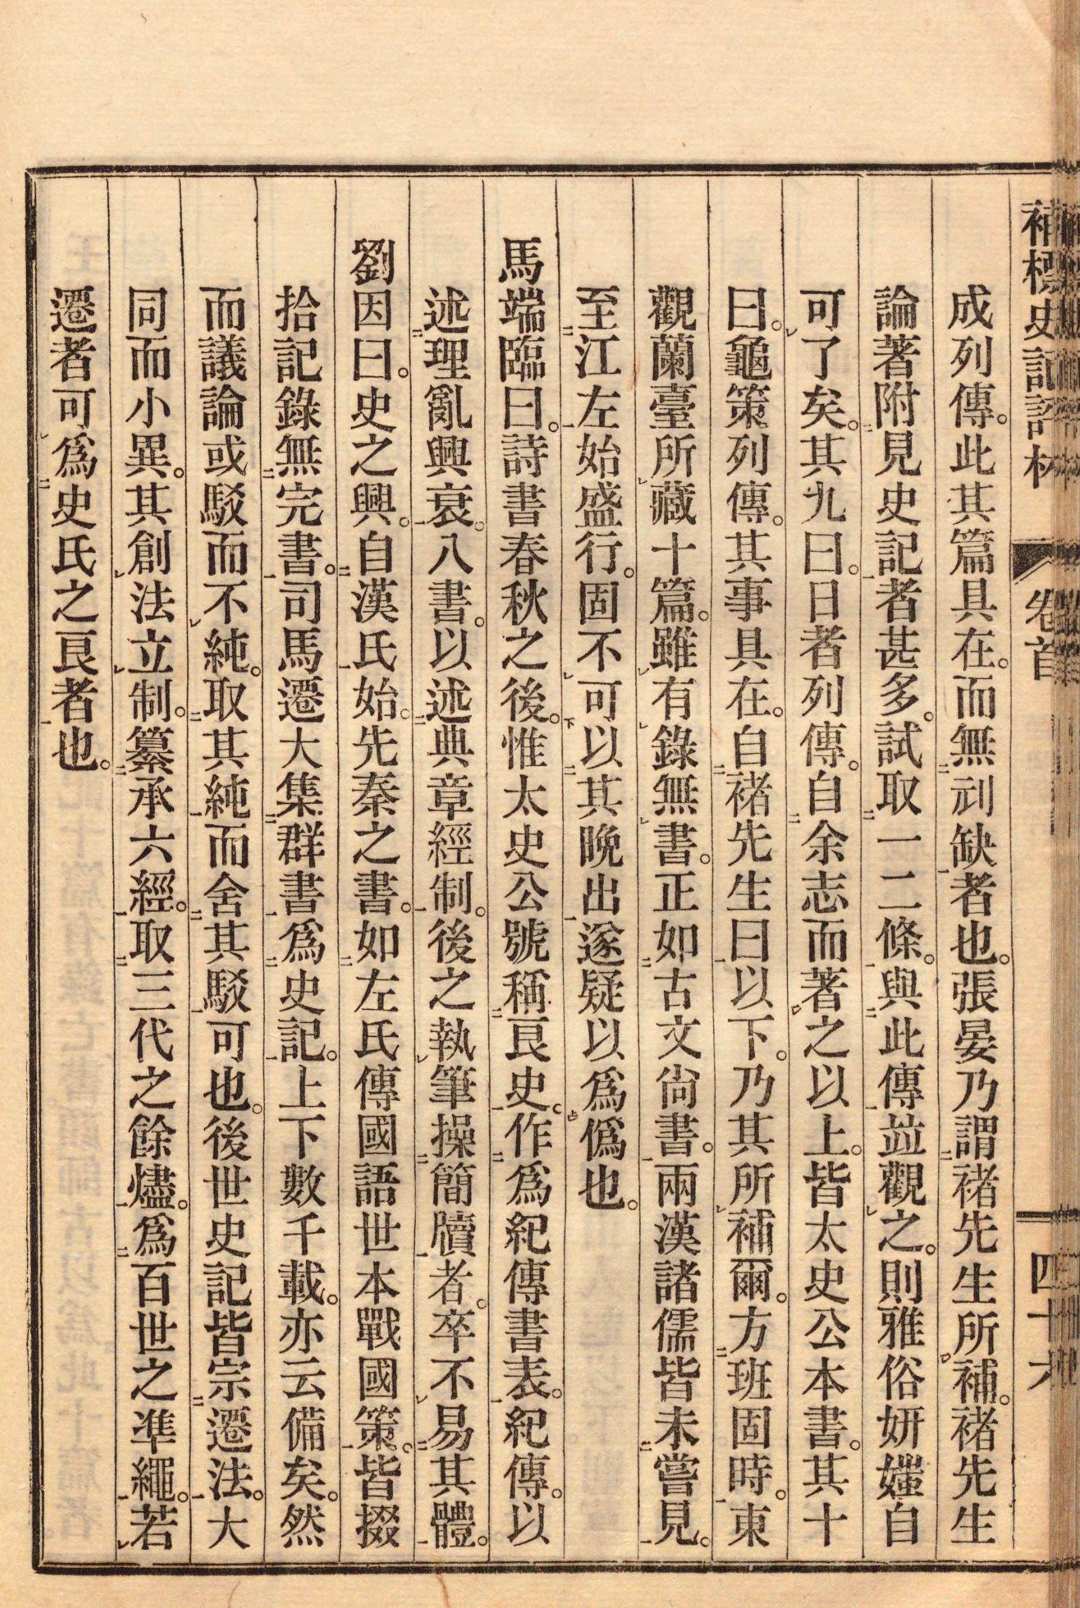 補標史記評林 卷首 四十六
成列傳。此其篇具在。而無刓缺者也。張晏乃謂褚先生所補。褚先生
論著附見史記者甚多。試取一二條。與此傳竝觀之。則雅俗妍媸自
可了矣。其九曰。日者列傳。自余志而著之以上。皆太史公本書。其十
曰。龜策列傳。其事具在。自褚先生曰以下。乃其所補爾。方班固時。東
觀蘭臺所藏十篇。雖有錄無書。正如古文尙書。兩漢諸儒皆未嘗見。
至江左始盛行。固不可以其晚出遂疑以爲僞也。
馬端臨曰。詩書春秋之後。惟太史公號稱良史。作爲紀傳書表。紀傳。以
述理亂興衰。八書。以述典章經制。後之執筆操簡牘者。卒不易其體。
劉因曰。史之興。自漢氏始。先秦之書。如左氏傳國語世本戰國策。皆掇
拾記錄無完書。司馬遷大集群書爲史記。上下數千載。亦云備矣。然
而議論或駁而不純。取其純而舍其駁可也。後世史記皆宗遷法。大
同而小異。其創法立制。纂承六經。取三代之餘燼。爲百世之準繩。若
遷者可爲史氏之良者也。